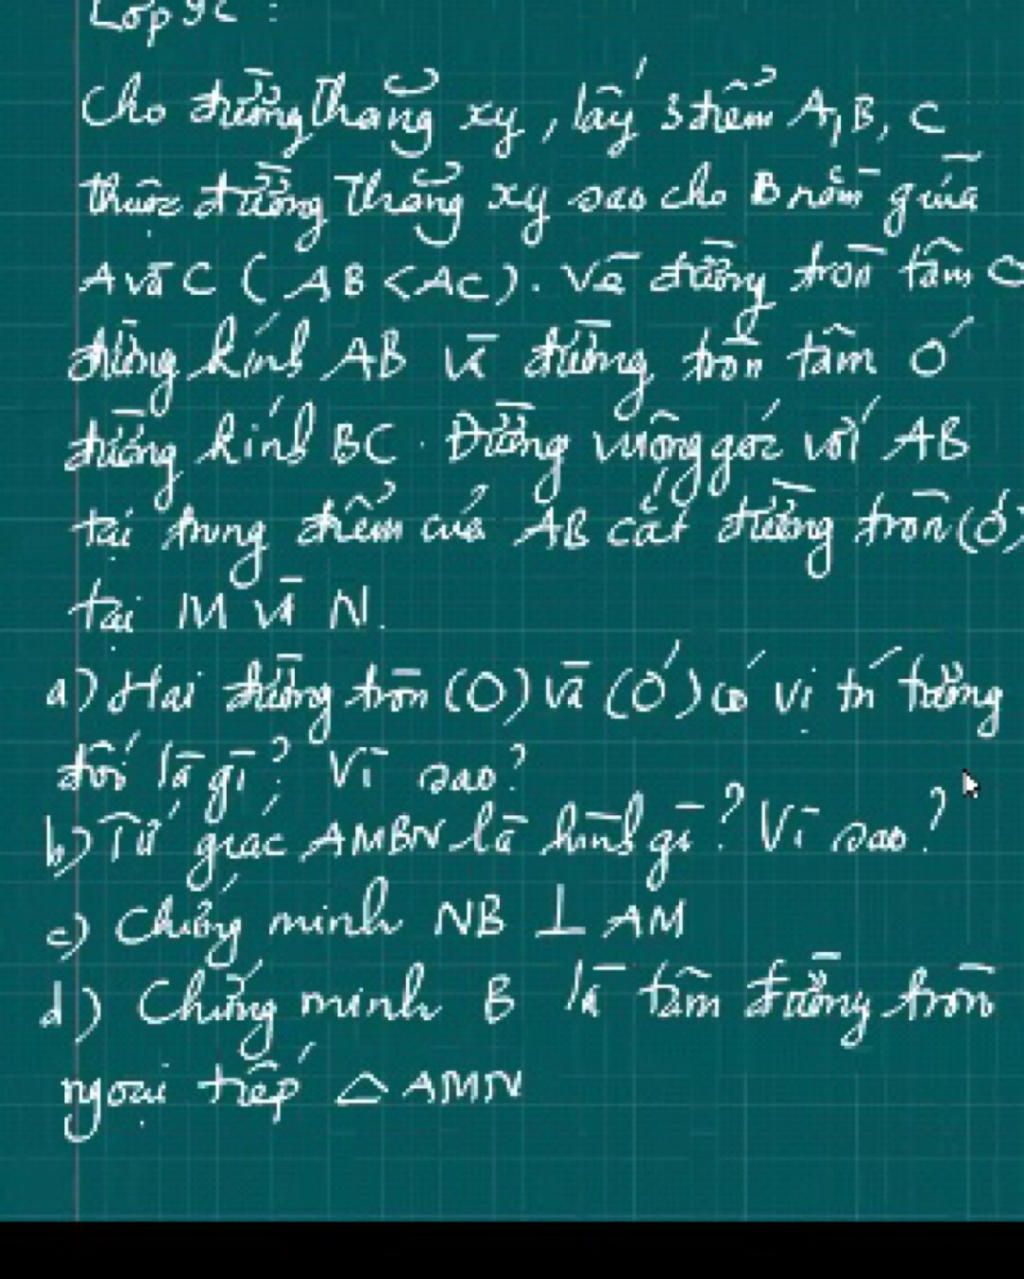 Lớp 9C :
Cho đường thẳng xy, lấy 3 điểm A, B, C
thuộc đường thẳng xy sao cho B nằm giữa
A và C (AB < AC). Vẽ đường tròn tâm O
đường kính AB và đường tròn tâm O'
đường kính BC. Đường vuông góc với AB
tại trung điểm của AB cắt đường tròn (O)
tại M và N.
a) Hai đường tròn (O) và (O') có vị trí tương
đối là gì? Vì sao?
b) Tứ giác AMBN là hình gì? Vì sao?
c) Chứng minh NB ⊥ AM
d) Chứng minh B là tâm đường tròn
ngoại tiếp △ AMN